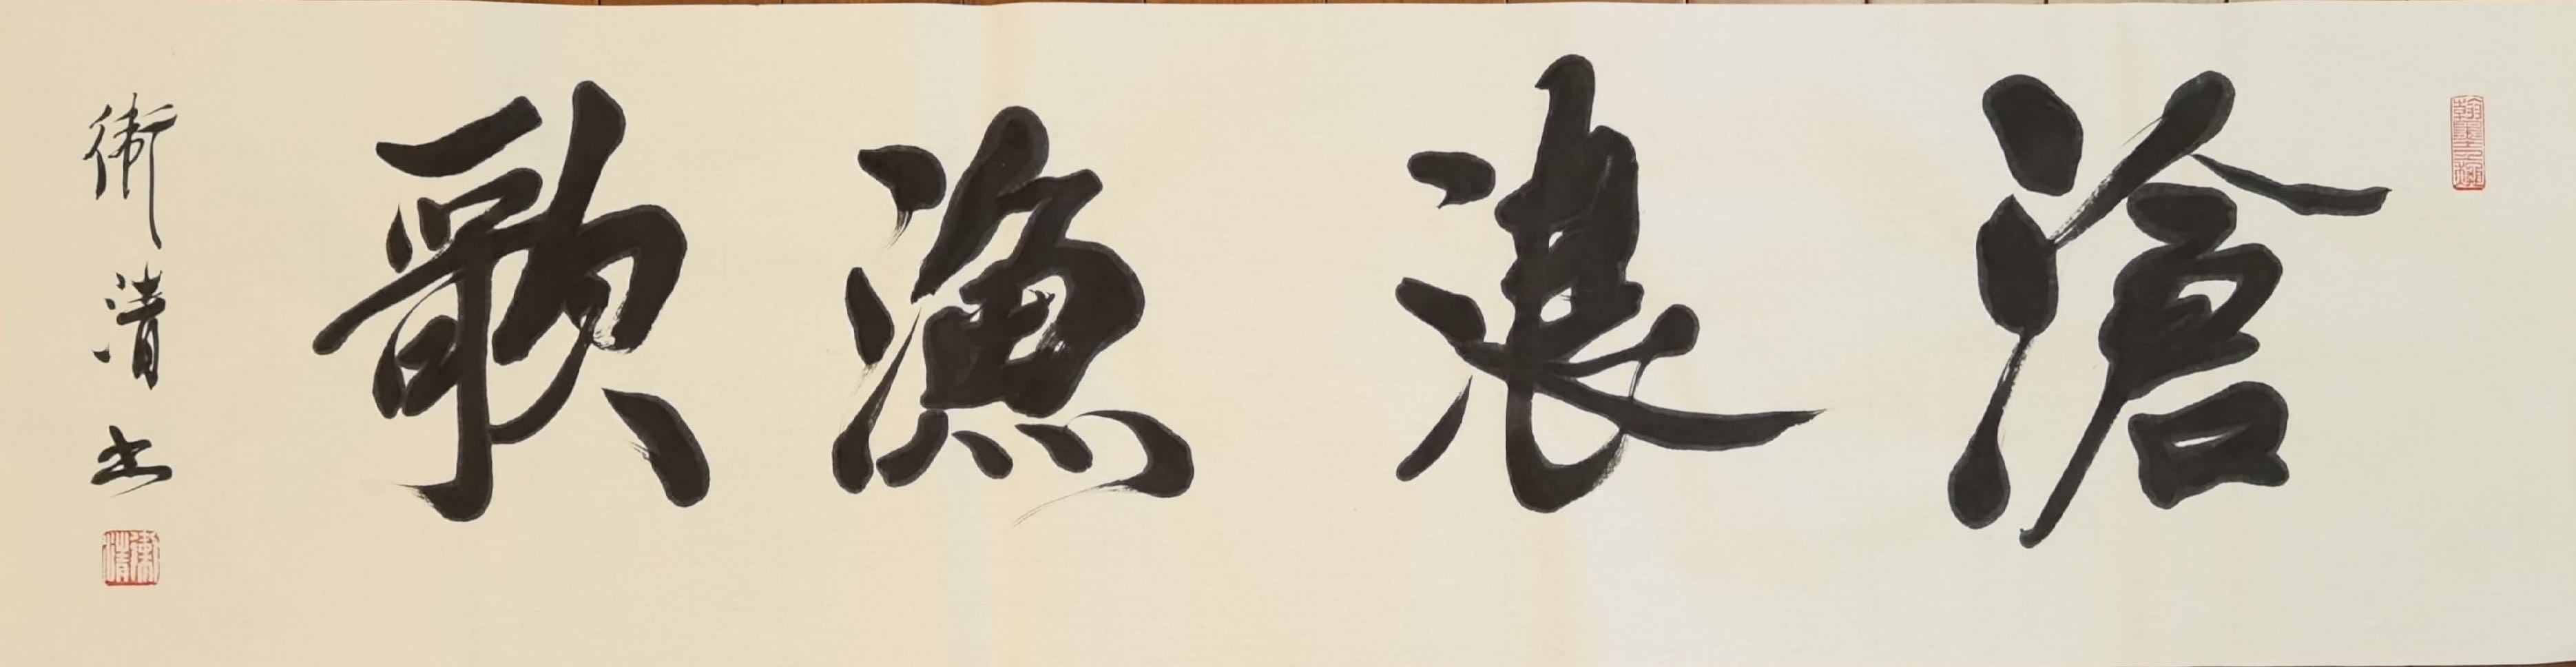 滄浪漁歌
衛清书
翰墨之趣
衛清